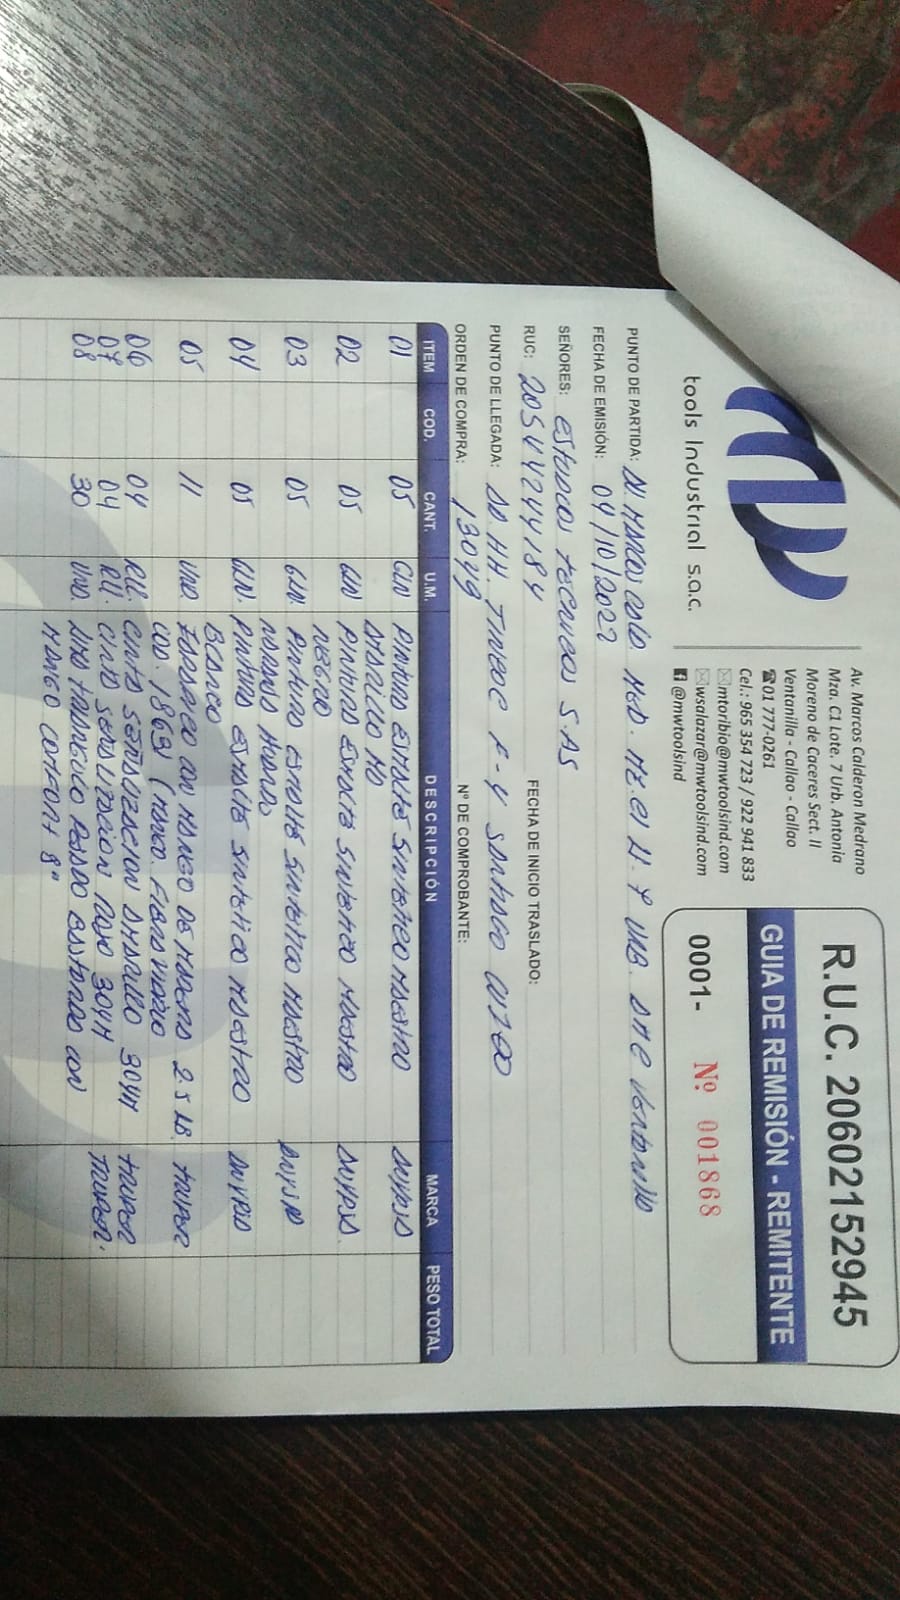 tools Industrial s.a.c.
Av. Marcos Calderon Medrano
Mza. C1 Lote. 7 Urb. Antonia
Moreno de Caceres Sect. II
Ventanilla - Callao - Callao
☎01 777-0261
Cel.: 965 354 723 / 922 941 833
✉mtoribio@mwtoolsind.com
✉wsalazar@mwtoolsind.com
@mwtoolsind
R.U.C. 20602152945
GUIA DE REMISIÓN - REMITENTE
0001- Nº 001868
PUNTO DE PARTIDA: MZ. C1 URB.
FECHA DE EMISIÓN: 04/10/2022
SEÑORES: Estudios Tecnicos S.AS FECHA DE INICIO TRASLADO:
RUC: 20544244184
PUNTO DE LLEGADA: AA.HH. F-4 Santiago
ORDEN DE COMPRA: 13049 Nº DE COMPROBANTE:
ITEM COD. CANT. U.M. DESCRIPCIÓN MARCA PESO TOTAL
01 05 GLN Pintura Esmalte Sintetico Maestro
Amarillo
02 05 GLN Pintura Esmalte Sintetico Maestro
Negro
03 05 GLN. Pintura Esmalte Sintetico Maestro
04 05 GLN. Pintura Esmalte Sintetico Maestro
Blanco
05 11 UND. con Mango de Madera 2.5 LB. Truper
COD. (Mango Fibra Vidrio
06 04 Rll. Cinta Señalizacion Amarillo Truper
07 04 Rll. Cinta Señalizacion Rojo Truper
08 30 UND. Lima Triangulo Pesado con Truper.
Mango Comfort 8"